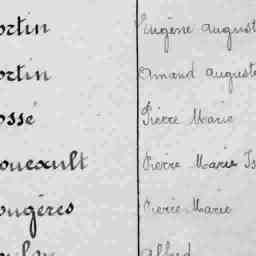 ortin Eugène August
ortin Amand Auguste
ossé Pierre Marie
oueault Pierre Marie
ougères Pierre Marie
Alfred